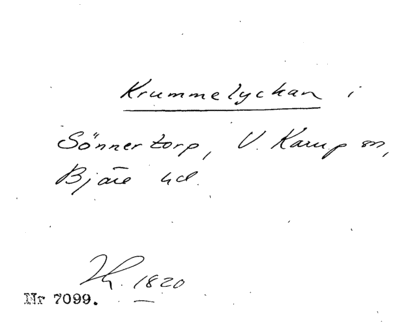 Krummelyckan i
Sönnertorp, V. Karup sn,
Bjäre hd.
1820
Nr 7099.